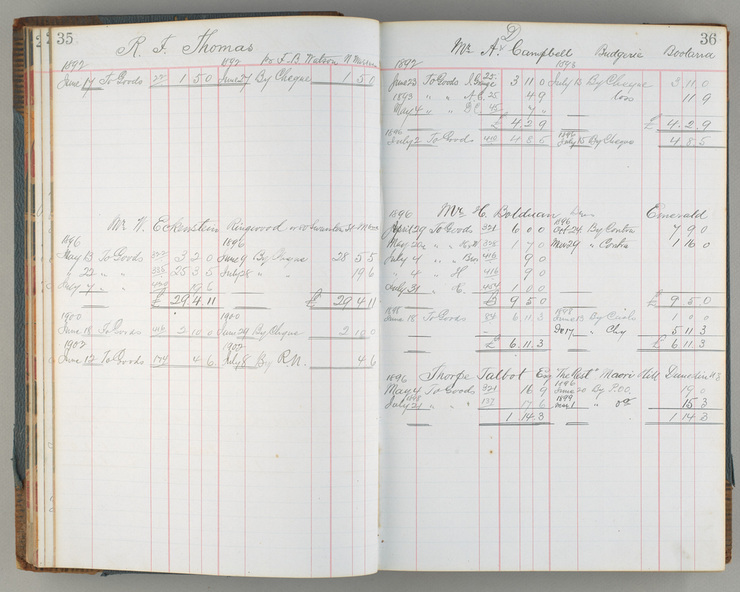 35
R. F. Thomas
1892 1892 F. B. Watson
June 17 To Goods 1 5 0 June 27 By Cheque 1 5 0
Mr W. Eckenstein Ringwood
1896 1896
May 13 To Goods 3 2 0 June 9 By Cheque 28 5 5
" 22 " " 25 3 5 July 28 " " 19 6
July 7 " " 18 6
£ 29 4 11 £ 29 4 11
1900 1900
June 18 To Goods 2 10 0 June 24 By Cheque 2 10 0
1902 1902
June 12 To Goods 174 4 6 July 8 By P.N. 4 6
36
D
Mr A. Campbell Budgerie Boolarra
1892 1893
June 23 To Goods 25 3 11 0 July 13 By Cheque 3 11 0
1893 " " 25 4 9 loss 11 9
May 4 " " 7
£ 4 2 9 £ 4 2 9
1896 1896
July 2 To Goods 4 8 5 July 15 By Cheque 4 8 5
1896 Mr H. Bolduan Emerald
1896
April 29 To Goods 321 6 0 0 Oct 24 By Contra 7 9 0
May " " 1 7 0 Nov 29 " Contra 1 16 0
July 4 " " 416 9 0
" 4 " 416 9 0
July 31 " 1 0 0
£ 9 5 0 £ 9 5 0
1898 1898
June 18 To Goods 84 6 11 3 June 13 By Cash 1 0 0
Do 17 " Chq 5 11 3
£ 6 11 3 £ 6 11 3
1896 Thorpe Talbot Esq "The Nest" Maori Hill Dunedin N Z
1896
May 4 To Goods 321 16 9 June 20 By P.O.O. 19 0
1898 1899
July 21 " " 137 17 6 Mar 1 " 15 3
1 14 3 1 14 3